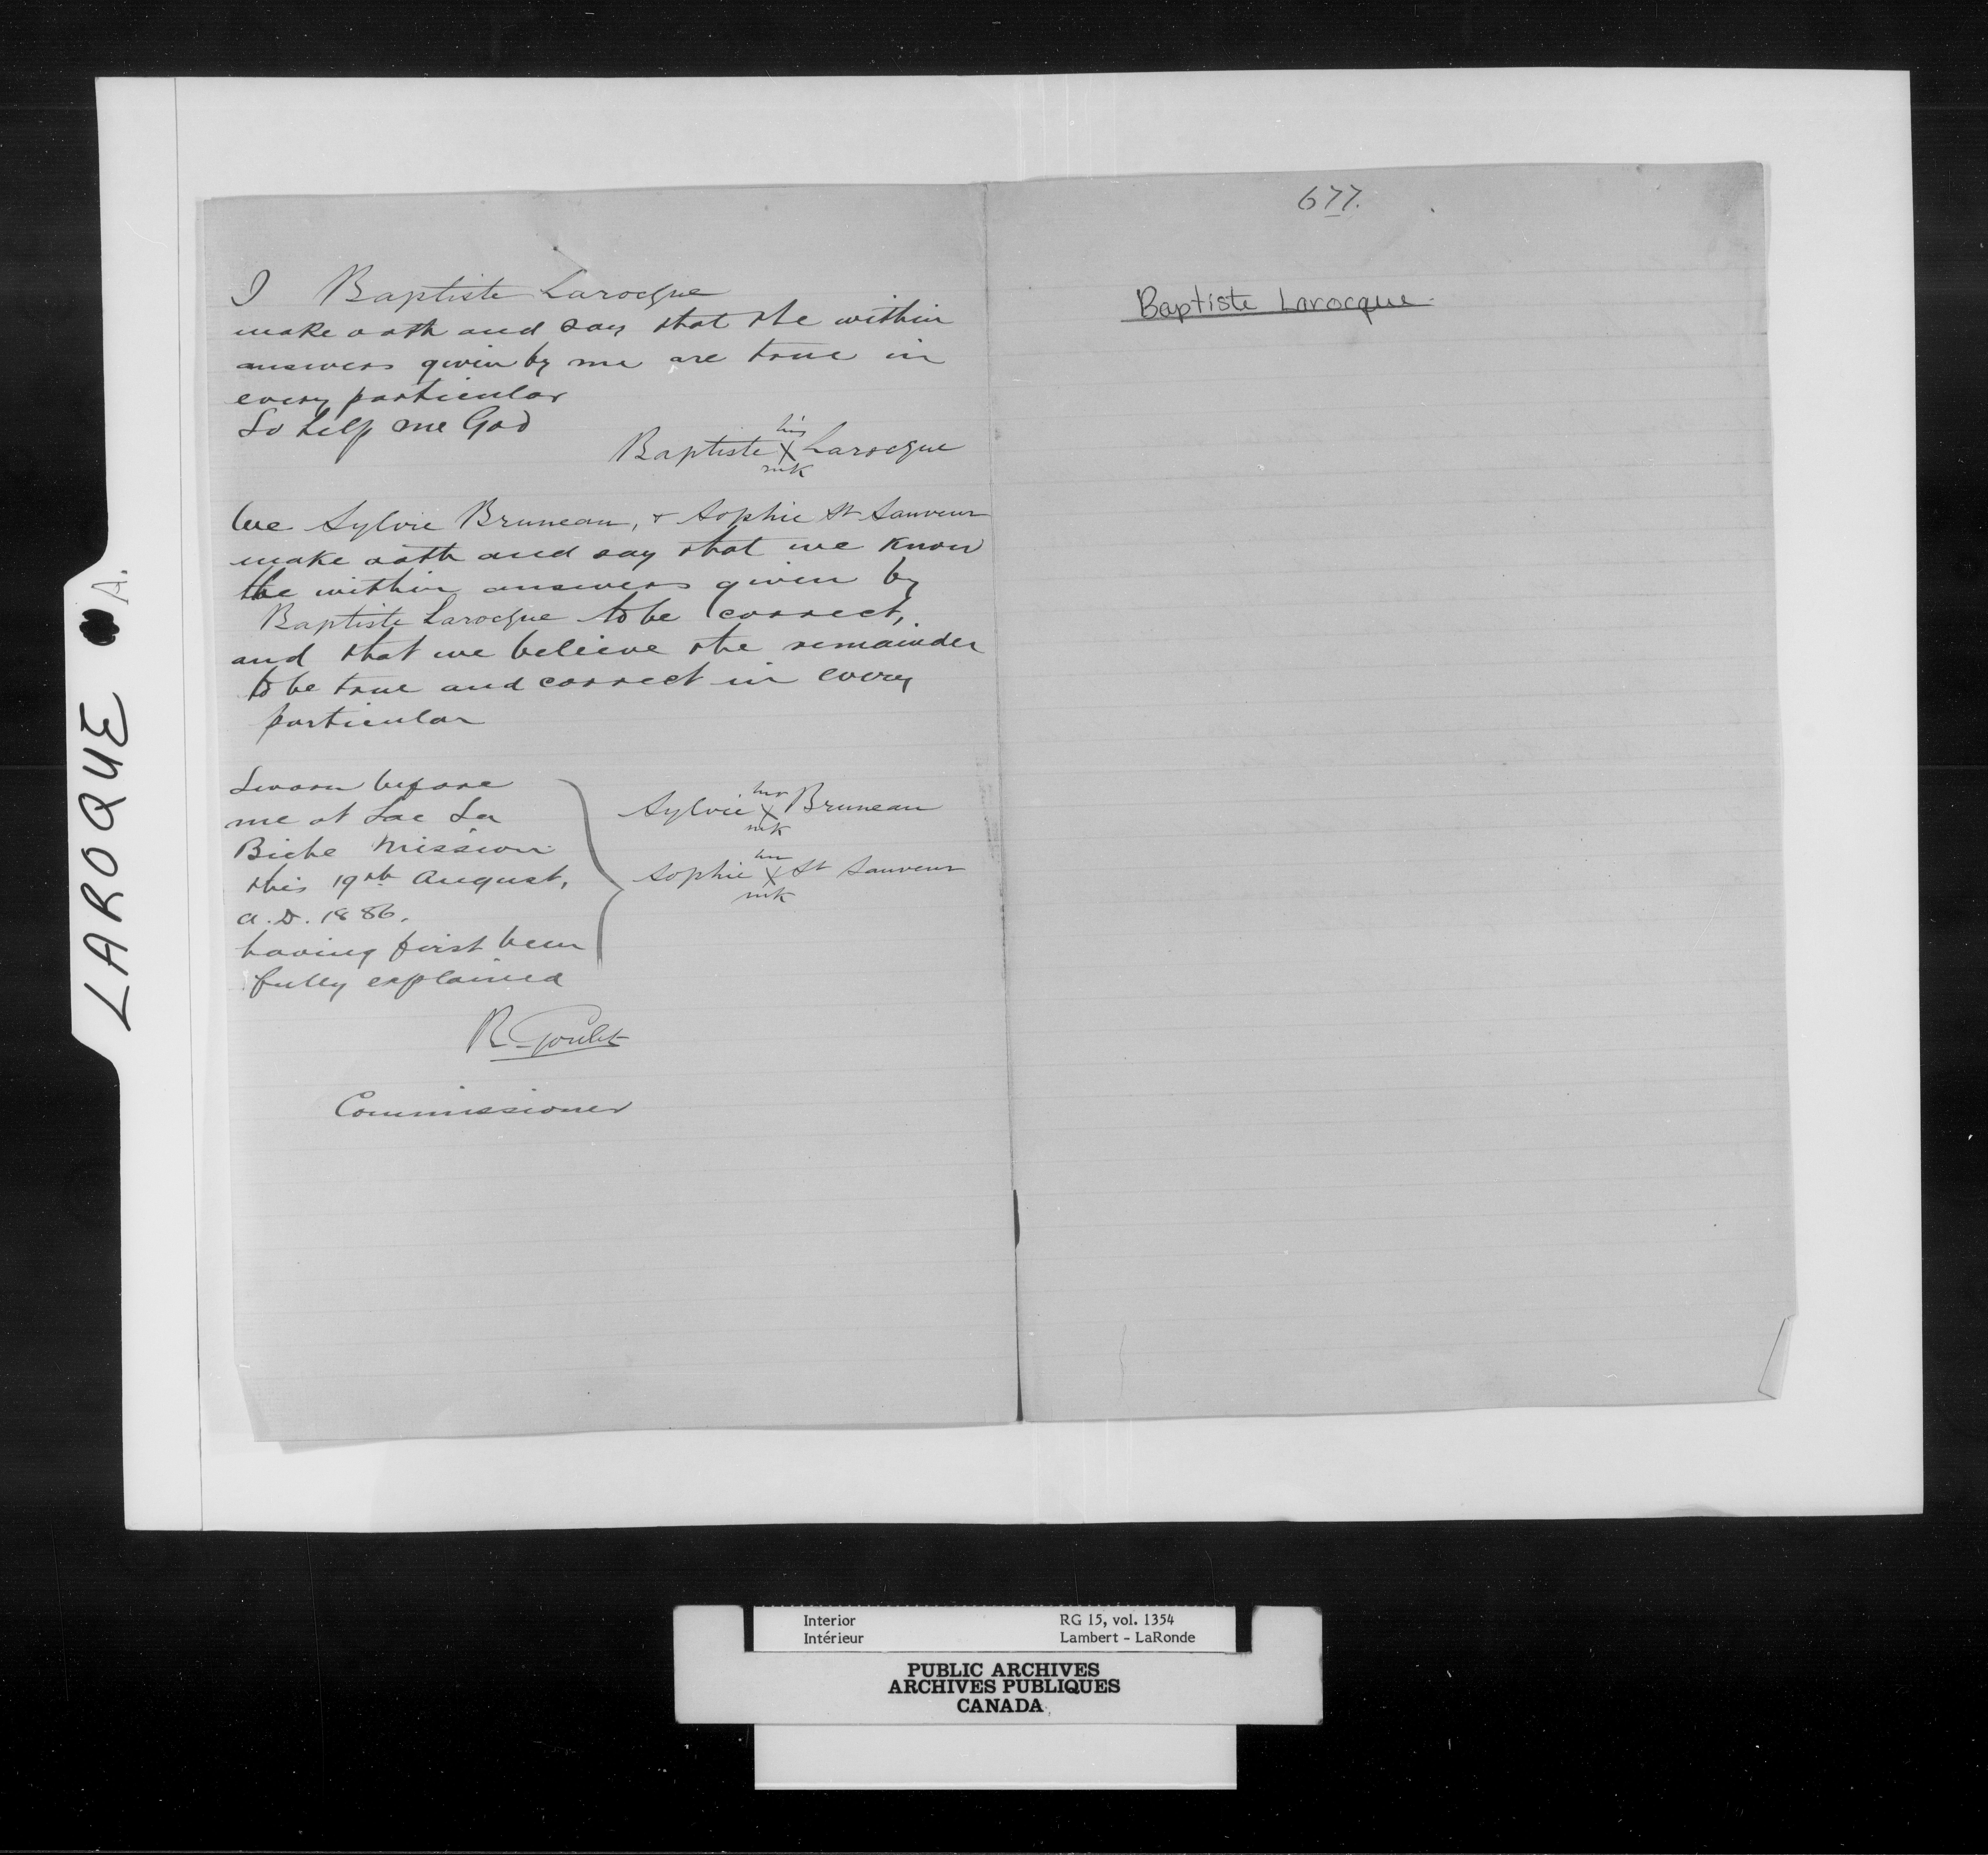 I Baptiste Larocque
make oath and say that the within
answers given by me are true in
every particular
So help me God
his
Baptiste X Larocque
mk
We Sylvie Bruneau, & Sophie St Sauveur
make oath and say that we know
the within answers given by
Baptiste Larocque to be correct,
and that we believe the remainder
to be true and correct in every
particular
Sworn before
me at Lac La
Biche Mission
this 19th August,
A.D. 1886.
having first been
fully explained
her
Sylvie X Bruneau
mk
her
Sophie X St Sauveur
mk
R. Goulet
Commissioner
677.
Baptiste Larocque
LAROQUE A.
Interior
Intérieur
RG 15, vol. 1354
Lambert - LaRonde
PUBLIC ARCHIVES
ARCHIVES PUBLIQUES
CANADA